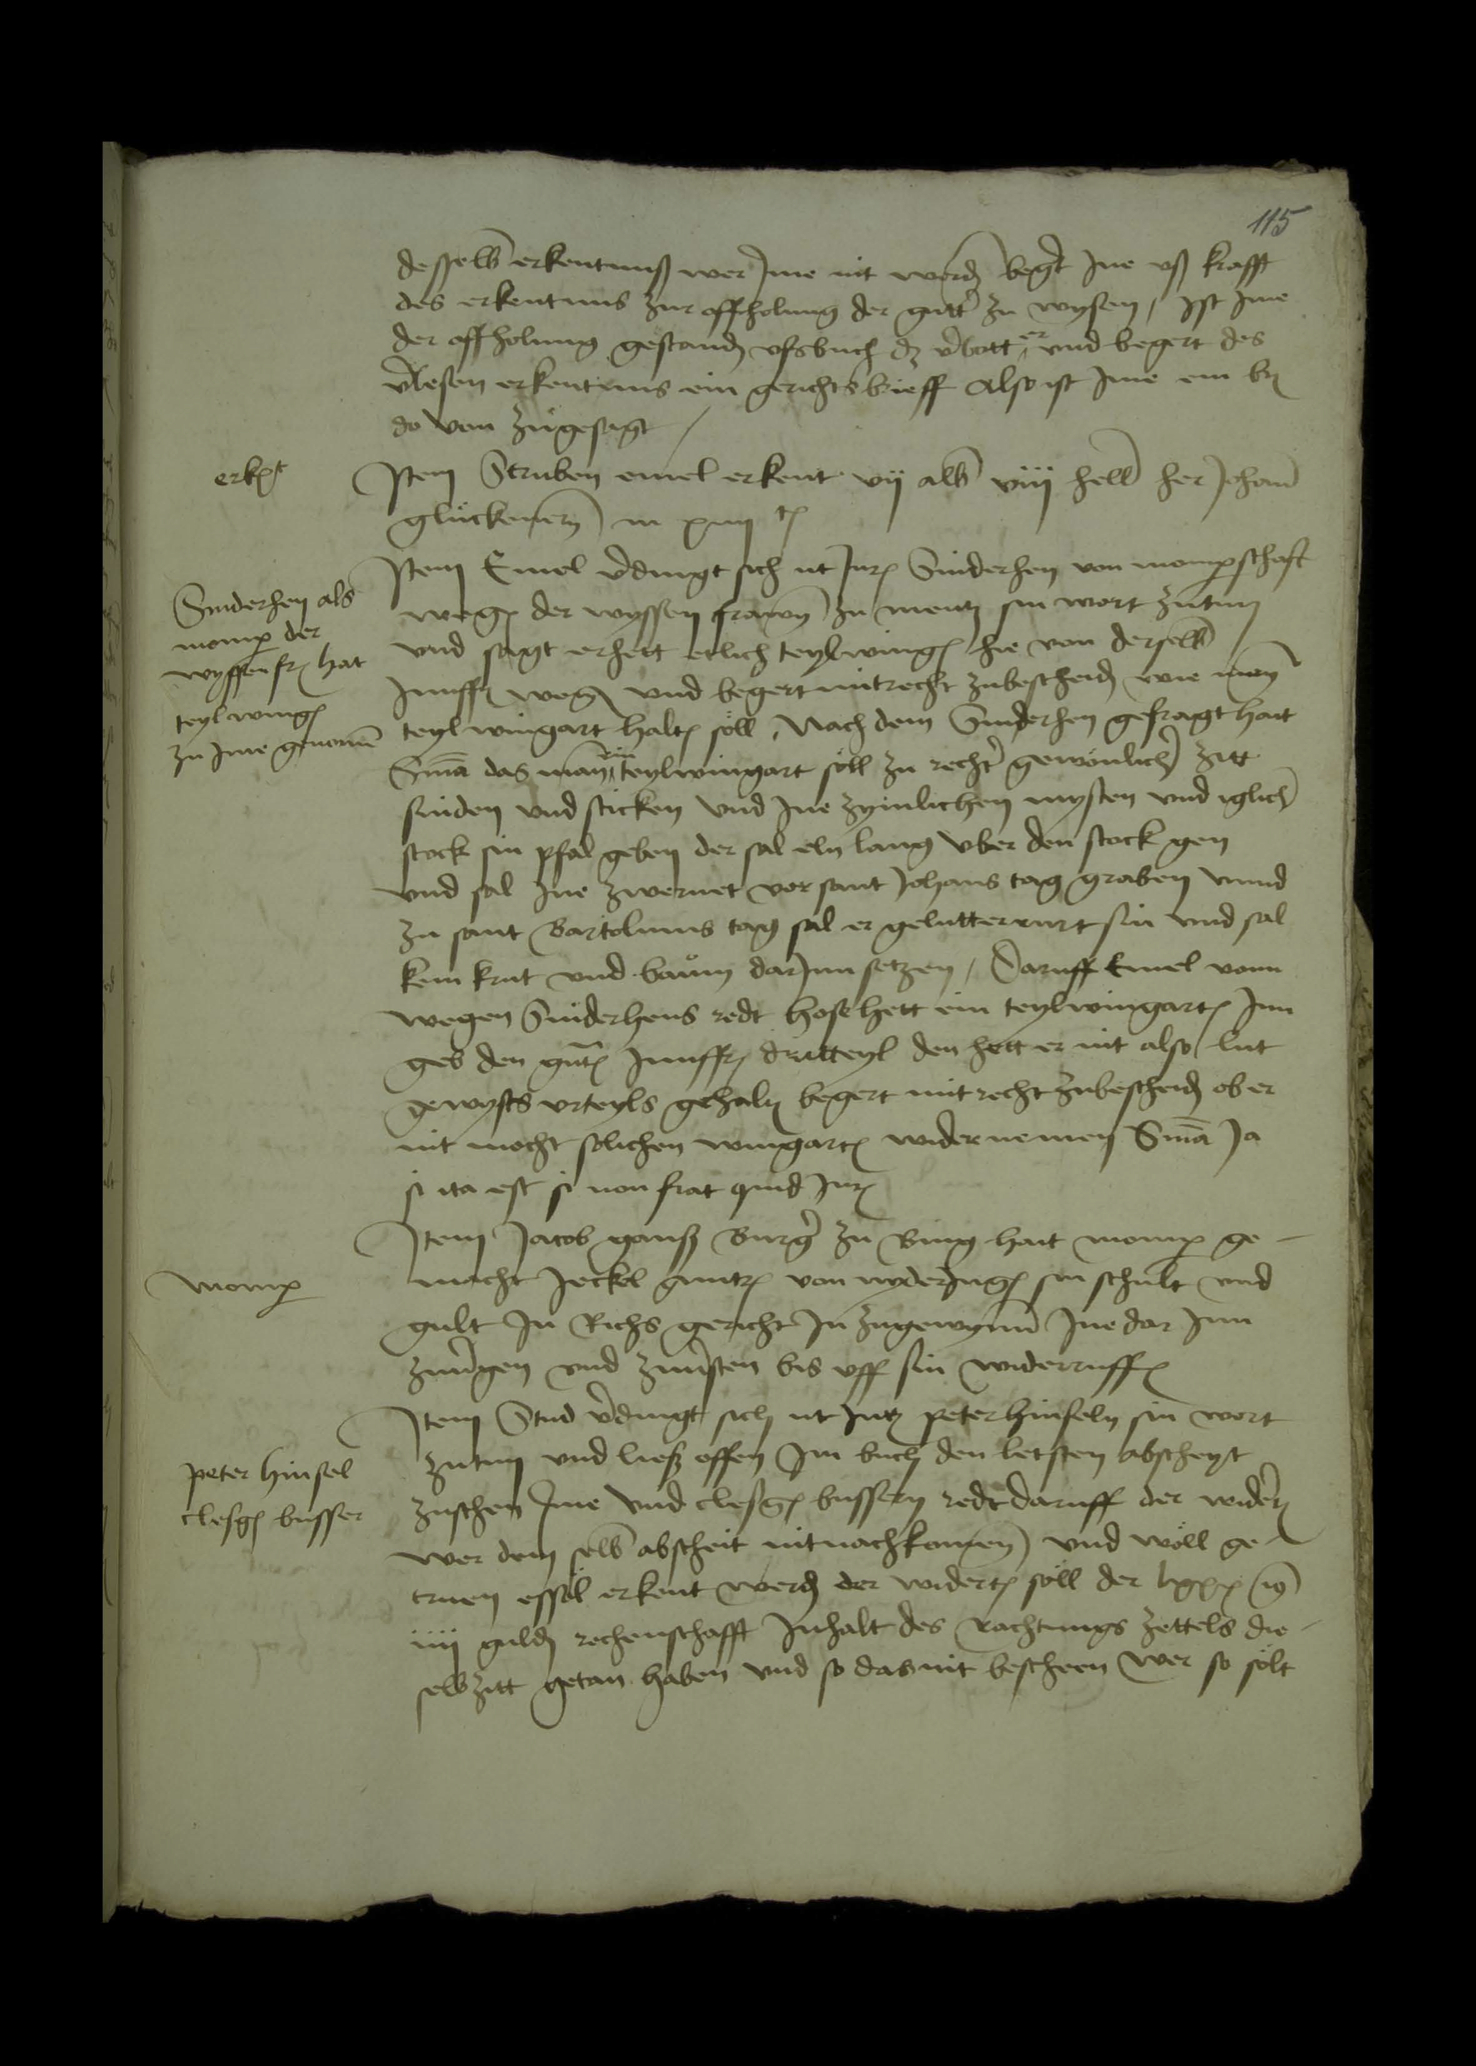 115
desselb erkentniß wer Ime nit word begert Ine uß krafft
des erkentnus zur uffholung der gutter zu wysen / ist Ime
der uffholung gestand ufsbuch dz verbott er und begert des
verlesen erkentnus ein gerichtsbrieff also ist Ime ein br
do von zugesagt /
erkent
Item Struben emel erkent vij alb viij hell her Johan
gluckener in xiiij t
Sniderhen als
momp der
wyssen fr hat
teylwing
zu Ime genomen
Item Emel verdingt sich ut Jur Sniderhen von momperschafft
wegen der wyssen frawen zu mentz sin wort zutun
und sagt er hett etlich teylwing hie von derselb
Junffr wegen und begert mit recht zubescheid wie man
teylwingart halt soll Nach dem Sniderhen gefragt hait
Snia das man ein teylwingart soll zu rechter gewonlicher zitt
sniden und sticken und Ine zymlichen mysten und iglich
stock sin pfal geben der sal eln lang uber den stock gen
und sal Ine zwernet vor sant Johans tag graben unnd
zu sant Bartolmus tag sal er gelutterrurt sin und sal
kein krut und baum dar Inn setzen / Daruff Emel vonn
wegen Sniderhens redt hose hett ein teylwingart Inn
geb den gut Junffr dritteyl den hett er nit also lut
gewysts urteyls gehalt begert mit recht zubescheid ob er
nit mocht solichen wingart widernemen Snia Ja
si ita est si non fiat quid Jur
momp
Item Jacob ganß Burger zu Bing hait momp ge-
macht Jeckel guntr von nyderIng sin schult und
gult In Richs gericht In zugewynnen Ine dar Inn
zuverligen und zuverlusten bis uff sin widerruffen
peter hinsel
clesg busser
Item Stud verdingt sich ut Jur peter hinseln sin wort
zutun und ließ offen Im buch den letsten abscheyt
zuschen Ime und clesgen bussern redt daruff der widert
wer dem selb abscheit nit nachkomen und woll ge-
truen es soll erkent werd der widert soll der
iiij guld rechenschafft Inhalt des rachtungs zettels die-
selb zitt getan haben und so das nit bescheen wer so solt